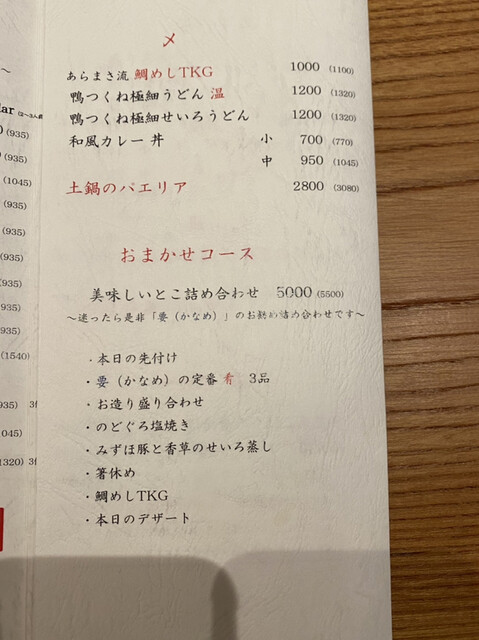 〆
あらまき流 鯛めしTKG 1000 (1100)
鴨つくね極細うどん 温 1200 (1320)
鴨つくね極細せいろうどん 1200 (1320)
和風カレー丼 小 700 (770)
中 950 (1045)
土鍋のパエリア 2800 (3080)
おまかせコース
美味しいとこ詰め合わせ 5000 (5500)
～迷ったら是非「要（かなめ）」のお勧め詰め合わせです～
・本日の先付け
・要（かなめ）の定番 肴 3品
・お造り盛り合わせ
・のどぐろ塩焼き
・みずほ豚と香草のせいろ蒸し
・箸休め
・鯛めしTKG
・本日のデザート
(935)
(935)
(1045)
(935)
(935)
(935)
(935)
(935)
(1540)
(935)
(1045)
(1320)